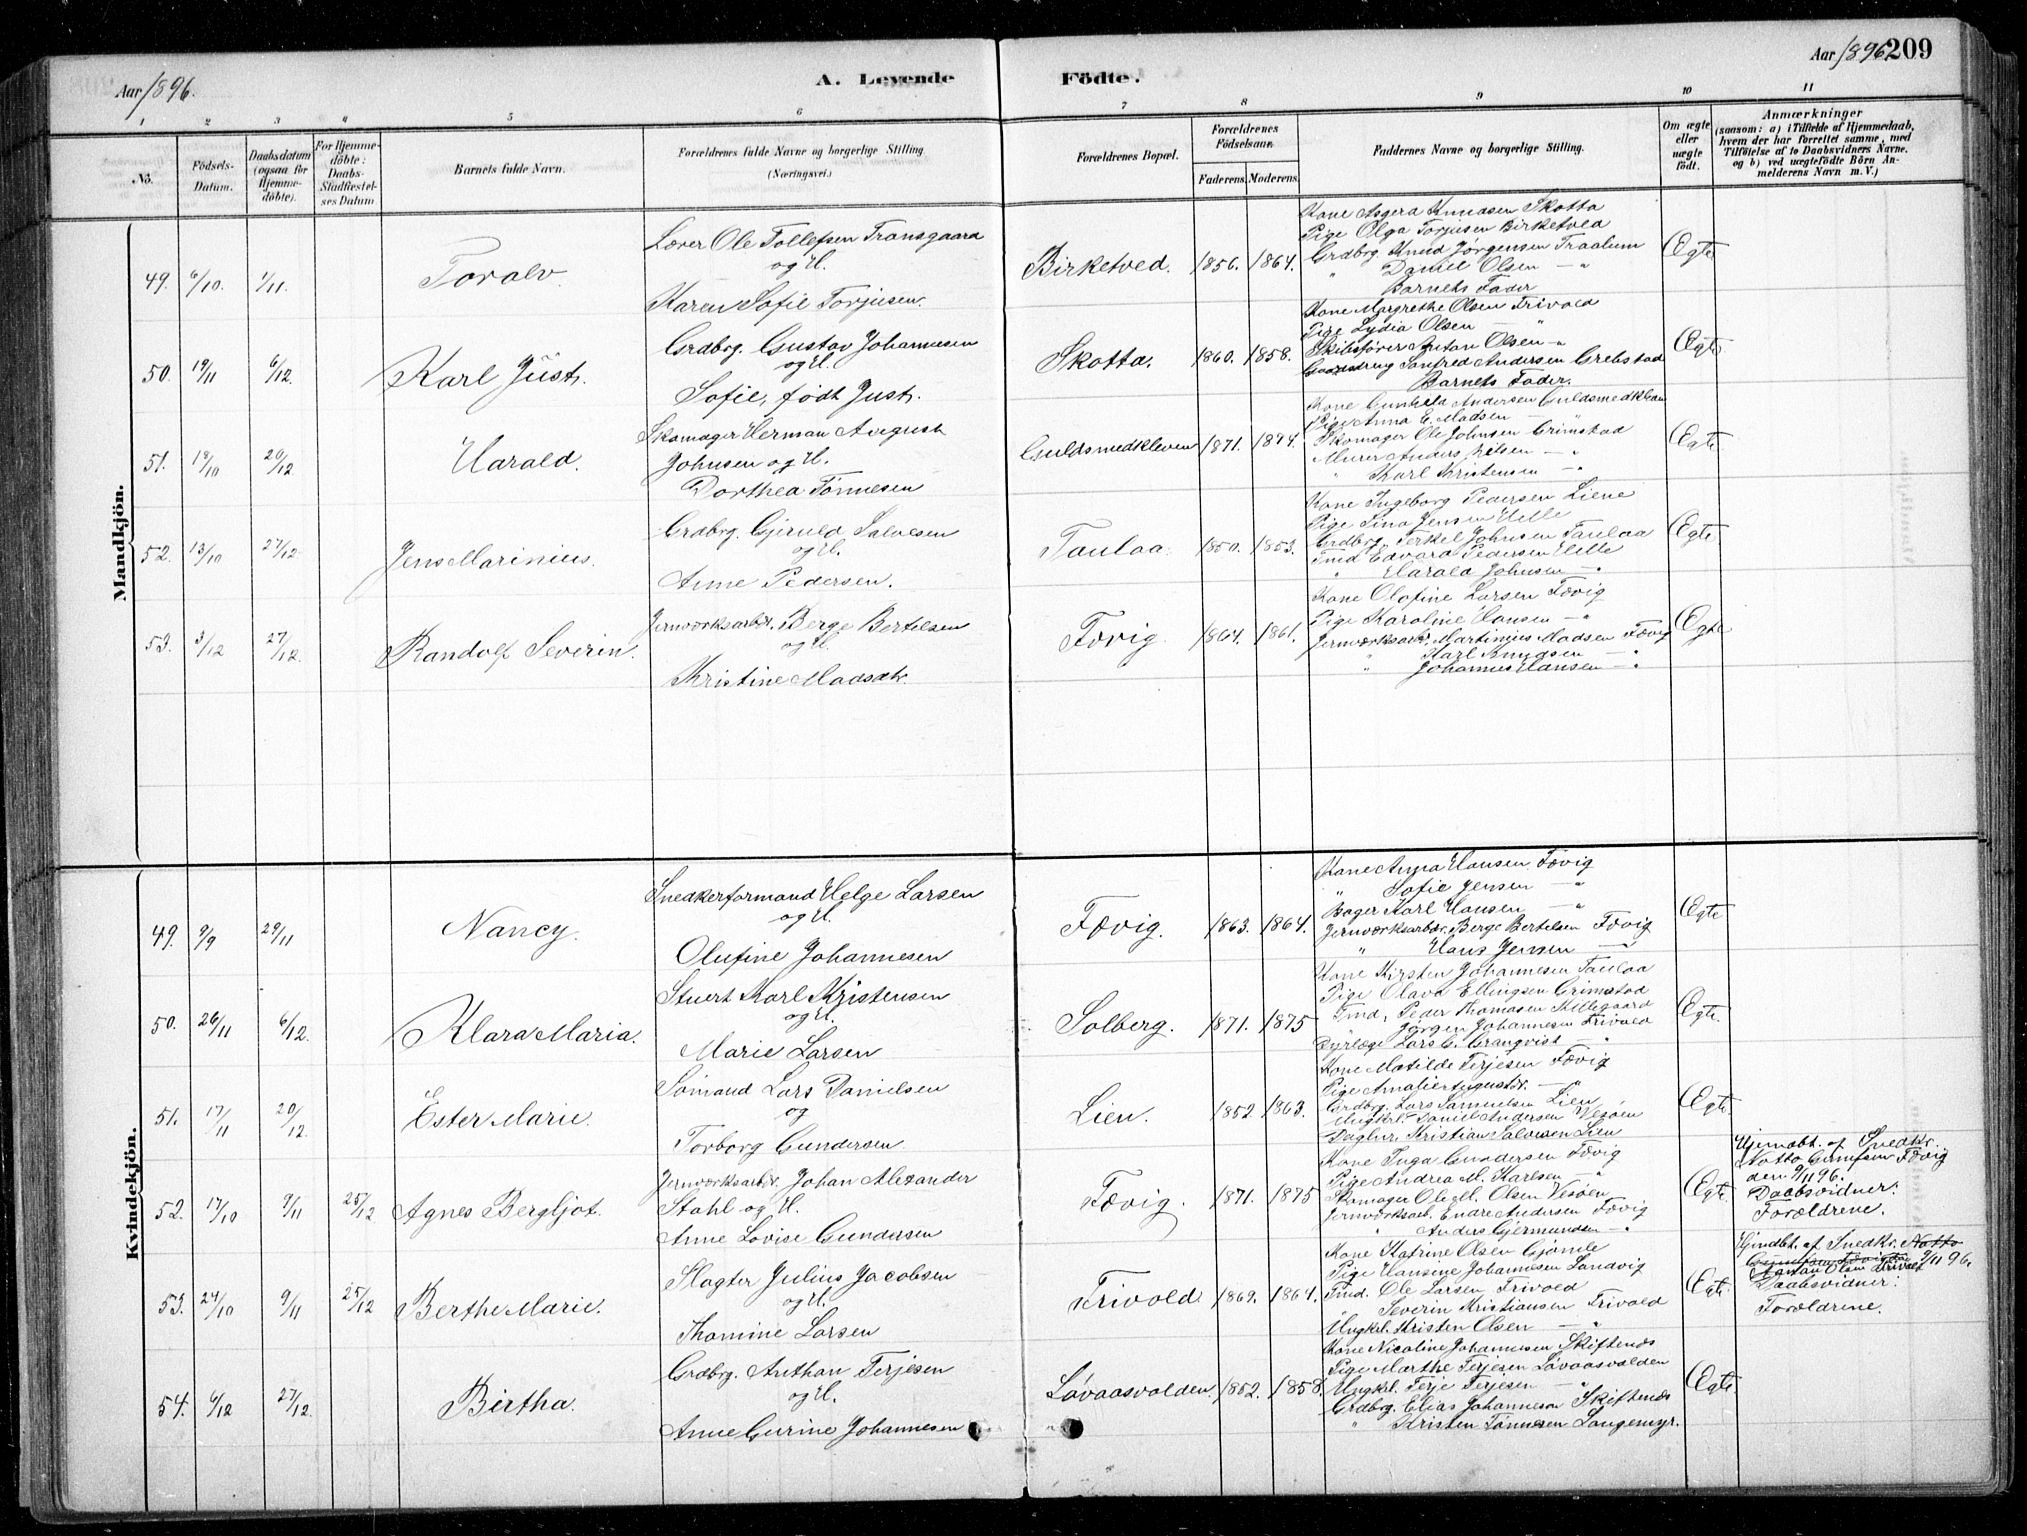 Aar 1896.
A. Levende Födte.
Aar 1896. 209
1 2 3 4 5 6 7 8 9 10 11
No.
Födsels-Datum.
Daabsdatum (ogsaa for Hjemmedöbte).
For Hjemmedöbte: Daabs-Stadfæstelses Datum.
Barnets fulde Navn.
Forældrenes fulde Navne og borgerlige Stilling (Næringsvei.)
Forældrenes Bopæl.
Forældrenes Födselsaar.
Faderens. Moderens.
Faddernes Navne og borgerlige Stilling.
Om ægte eller uægte födt.
Anmærkninger
(saasom: a) i Tilfælde af Hjemmedaab, hvem der har forrettet samme, med Tilföielse af to Daabsvidners Navne. og b) ved uægtefödte Börn Anmelderens Navn m. V.)
Mandkjön.
49. 6/10. 1/11. Toralv.
Lærer Ole Tollefsen Transgaard
og H.
Karen Sofie Torjusen.
Birketved. 1856. 1864.
Kone Asgera Knudsen Skotta
Pige Olga Torjusen Birketved
Grdbrg. Knud Jørgensen Traalum
" Daniel Olsen — "
Barnets Fader
Ægte
50. 19/11 6/12. Karl Just.
Grdbrg. Gustav Johannesen
og H.
Sofie, født Just.
Skotta. 1860. 1858.
Kone Margrethe Olsen Trivold
Pige Lydia Olsen — "
Skibsfører Anton Olsen — "
Sanfred Andersen Grebstad
Barnets Fader.
Ægte
51. 18/10 20/12 Harald.
Skomager Herman August
Johnsen og H.
Dorthea Tönnesen
Guldsmedkleven 1871. 1874.
Kone Gunhild Andersen Guldsmedkleven
Pige Anna E. Madsen — "
Skomager Ole Johnsen Grimstad
Murer Anders Nilsen — "
" Karl Kristensen — "
Ægte
52. 13/10 27/12. Jens Marinius.
Grdbrg. Gjeruld Salvesen
og H.
Anne Pedersen.
Taulaa. 1850. 1853.
Kone Ingeborg Pedersen Liene
Pige Lina Jensen Helle
Grdbrg. Terkel Johnsen Taulaa
Tmd Edvard Pedersen Helle
" Harald Johnsen — "
Ægte
53. 3/12 27/12. Randolf Severin.
Jernværksarbdr. Berge Bertelsen
og H.
Kristine Madsdtr.
Fævig. 1864. 1861.
Kone Olofine Larsen Fævig
Pige Karoline Hansen — "
Jernværksarbr. Martinius Madsen Fævig
" Karl Knudsen — "
" Johannes Hansen — "
Ægte
Kvindekjön.
49. 9/9 29/11 Nancy.
Snedkerformand Helge Larsen
og H.
Olufine Johannesen
Fævig. 1863. 1864.
Kone Anna Hansen Fævig
" Sofie Jensen — "
Bager Karl Hansen — "
Jernværksarbdr. Berge Bertelsen Fævig
" Hans Jensen — "
Ægte
50. 26/11 6/12. Klara Maria.
Stuert Karl Kristensen
og H.
Marie Larsen
Solberg. 1871. 1875
Kone Kirsten Johannesen Taulaa
Pige Olava Ellingsen Grimstad
Tmd. Peder Thomasen Killegaard
" Jørgen Johannesen Trivold
Dyrlæge Lars C. Granqvist "
Ægte.
51. 17/11 20/12. Ester Marie.
Sömand Lars Danielsen
og
Torborg Gundersen
Lien. 1852 1863.
Kone Matilde Terjesen Fævig
Pige Amalie Augustdr. — "
Grdbrg. Lars Samuelsen Lien
Ungkrl. Daniel Andersen Vesöen
Daglnr. Kristian Salvesen Lien
Ægte
52. 17/10 9/11 25/12 Agnes Bergljot.
Jernværksarbdr. Johan Alexander
Stahl og H.
Anne Lovise Gundersen
Fævig. 1871. 1875
Kone Inga Gundersen Fævig
Pige Andrea M. Karlsen "
Skomager Ole M. Olsen Vesöen
Jernværksarb. Endre Andersen Fævig
" Anders Gjermundsen — "
Ægte
Hjemdbt. af Snedkr.
Notto Fævig
den 9/11 96.
Daabsvidner:
Forældrene.
53. 24/10 9/11 25/12 Berthe Marie.
Slagter Julius Jacobsen
og H.
Thomine Larsen
Trivold 1869. 1864.
Kone Katrine Olsen Gjömle
Pige Hansine Johannesen Landvig
Tmd. Ole Larsen Trivold
" Severin Kristiansen Trivold
Ungkrl. Kristen Olsen — "
Ægte.
Hjmdbt. af Snedkr. Notto
Anton Olsen Trivold 9/11 96.
Daabsvidner:
Forældrene.
54. 6/12 27/12. Birtha.
Grdbrg. Anthon Terjesen
og H.
Anne Gurine Johannesen
Løvaasvolden. 1852. 1858.
Kone Nicoline Johannesen Skiftenes
Pige Marthe Terjesen Løvaasvolden
Ungkrl. Terje Terjesen — "
Grdbrg. Elias Johannesen Skiftenes
" Kristen Tönnesen Langemyr.
Ægte